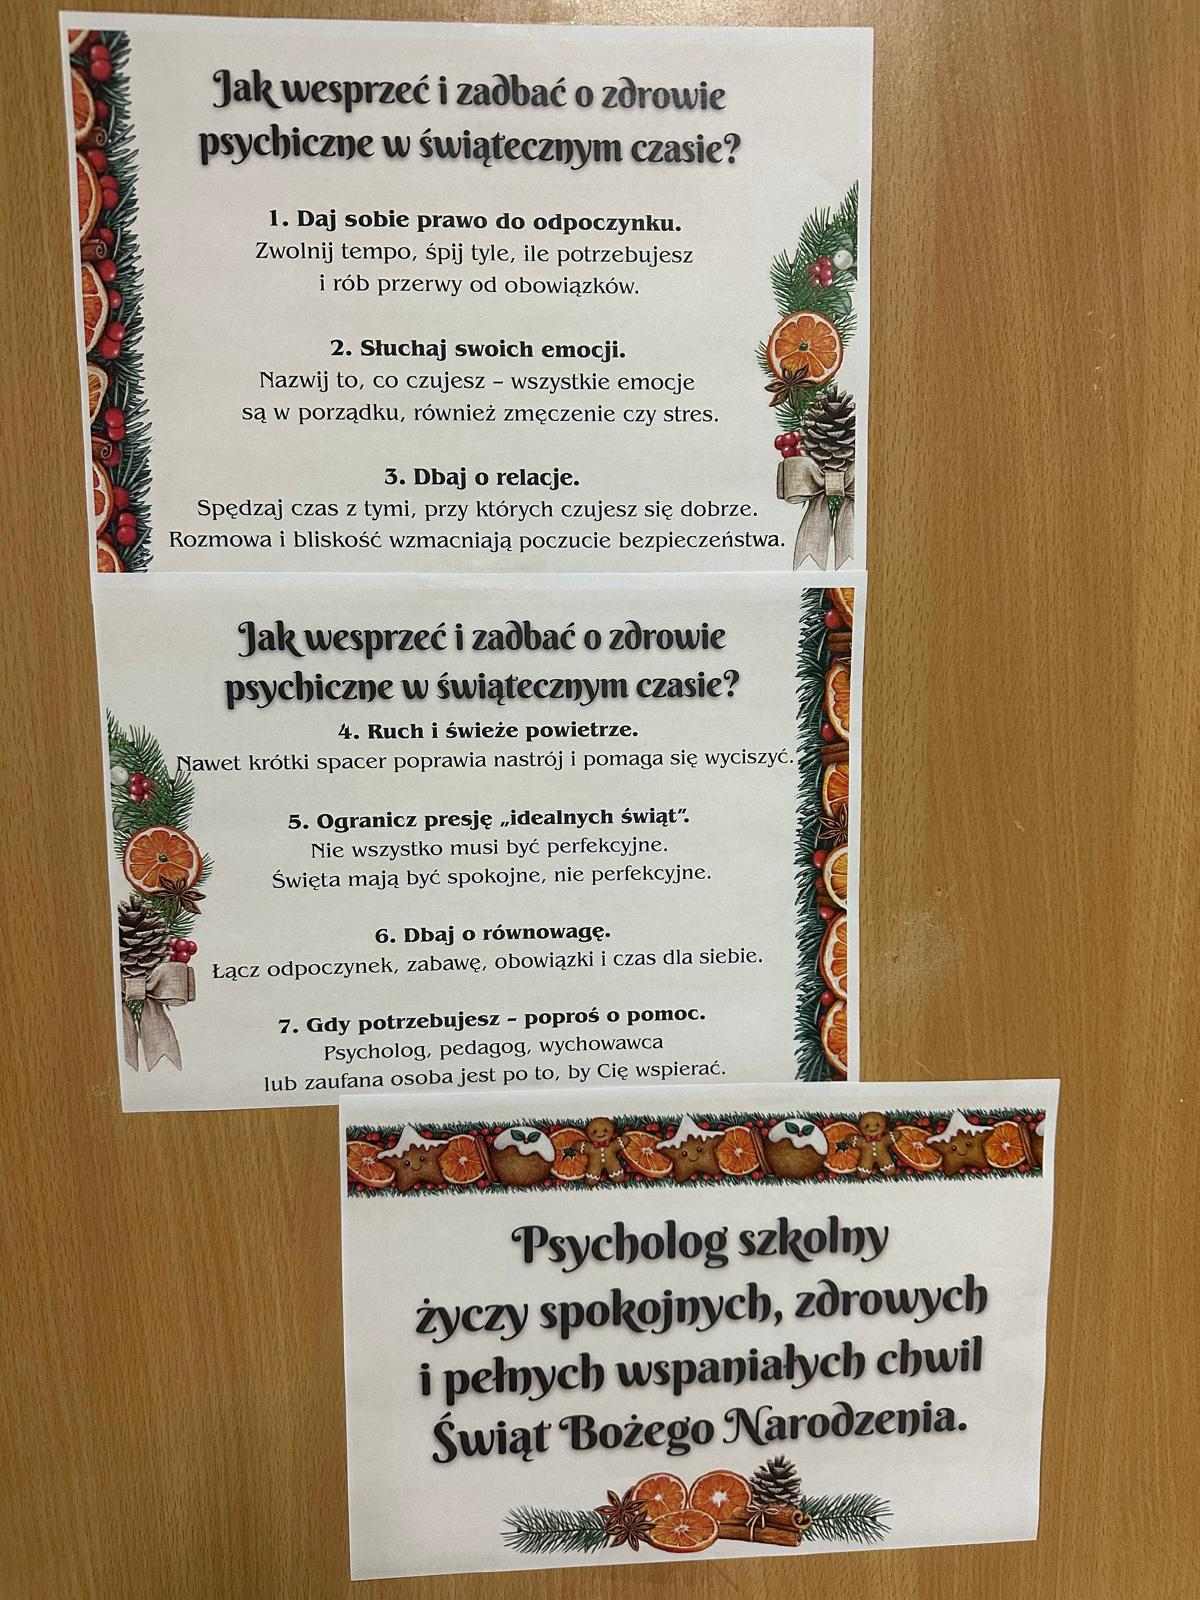 Jak wesprzeć i zadbać o zdrowie
psychiczne w świątecznym czasie?
1. Daj sobie prawo do odpoczynku.
Zwolnij tempo, śpij tyle, ile potrzebujesz
i rób przerwy od obowiązków.
2. Słuchaj swoich emocji.
Nazwij to, co czujesz – wszystkie emocje
są w porządku, również zmęczenie czy stres.
3. Dbaj o relacje.
Spędzaj czas z tymi, przy których czujesz się dobrze.
Rozmowa i bliskość wzmacniają poczucie bezpieczeństwa.
Jak wesprzeć i zadbać o zdrowie
psychiczne w świątecznym czasie?
4. Ruch i świeże powietrze.
Nawet krótki spacer poprawia nastrój i pomaga się wyciszyć.
5. Ogranicz presję „idealnych świąt”.
Nie wszystko musi być perfekcyjne.
Święta mają być spokojne, nie perfekcyjne.
6. Dbaj o równowagę.
Łącz odpoczynek, zabawę, obowiązki i czas dla siebie.
7. Gdy potrzebujesz – poproś o pomoc.
Psycholog, pedagog, wychowawca
lub zaufana osoba jest po to, by Cię wspierać.
Psycholog szkolny
życzy spokojnych, zdrowych
i pełnych wspaniałych chwil
Świąt Bożego Narodzenia.